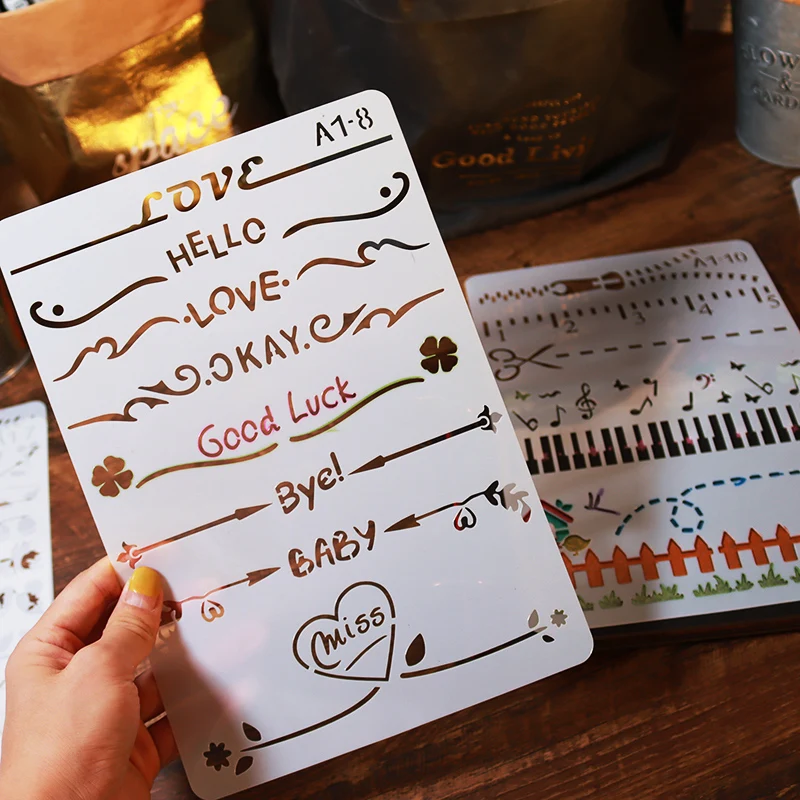 A1-8
LOVE
HELLO
·LOVE·
.OKAY.
Good Luck
Bye!
BABY
miss
A1-10
1 2 3 4 5
space
Good Livi
FLOWE
&
GARD